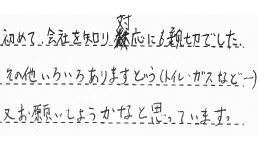 初めて会社を知り対応にも親切でした。
その他いろいろありますどう(トイレ・ガスなど…)
又お願いしようかなと思っています。